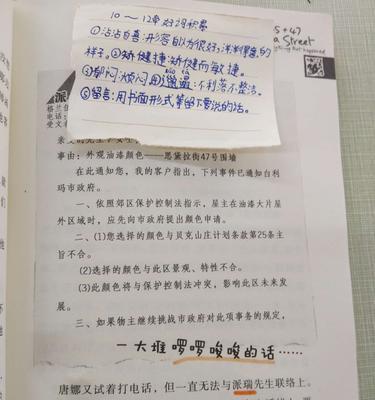 10~12章好词积累
①沾沾自喜:形容自以为很好,洋洋得意的
样子。②矫健捷:矫健而敏捷。
③郁闷:烦闷。④邋遢:不利落不整洁。
⑤留言:用书面形式留下要说的话。
5+47
a Street
派
格兰
电话
受文
事由:外观油漆颜色——思黛拉街47号围墙
在此通知您,我的客户指出,下列事件已通知白利
玛市政府。
一、依照郊区保护控制法指示,屋主在油漆大片屋
外区域时,应先向市政府提出颜色申请。
二、(1)您选择的颜色与贝克山庄计划条款第25条主
旨不合。
(2)选择的颜色与此区景观、特性不合。
(3)此颜色将与保护控制法冲突,影响此区未来发
展。
三、如果物主继续挑战市政府对此项事务的规定,
一大堆啰啰唆唆的话……
唐娜又试着打电话,但一直无法与派瑞先生联络上。